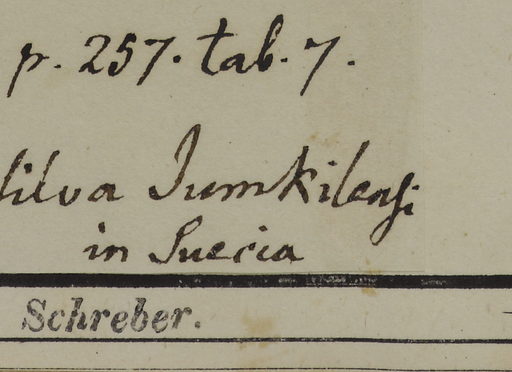 p. 257. tab. 7.
silva Jumkilensi
in Suecia
Schreber.